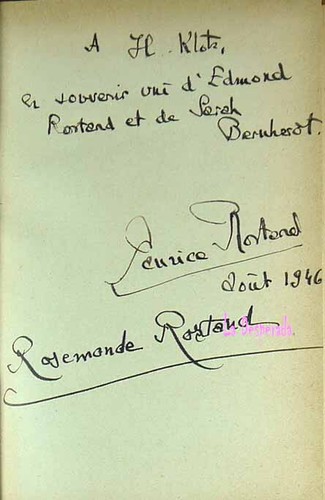 A H. Klotz,
en souvenir uni d'Edmond
Rostand et de Sarah
Bernhardt.
Maurice Rostand
Août 1946
Rosemonde Rostand
La Desperada.